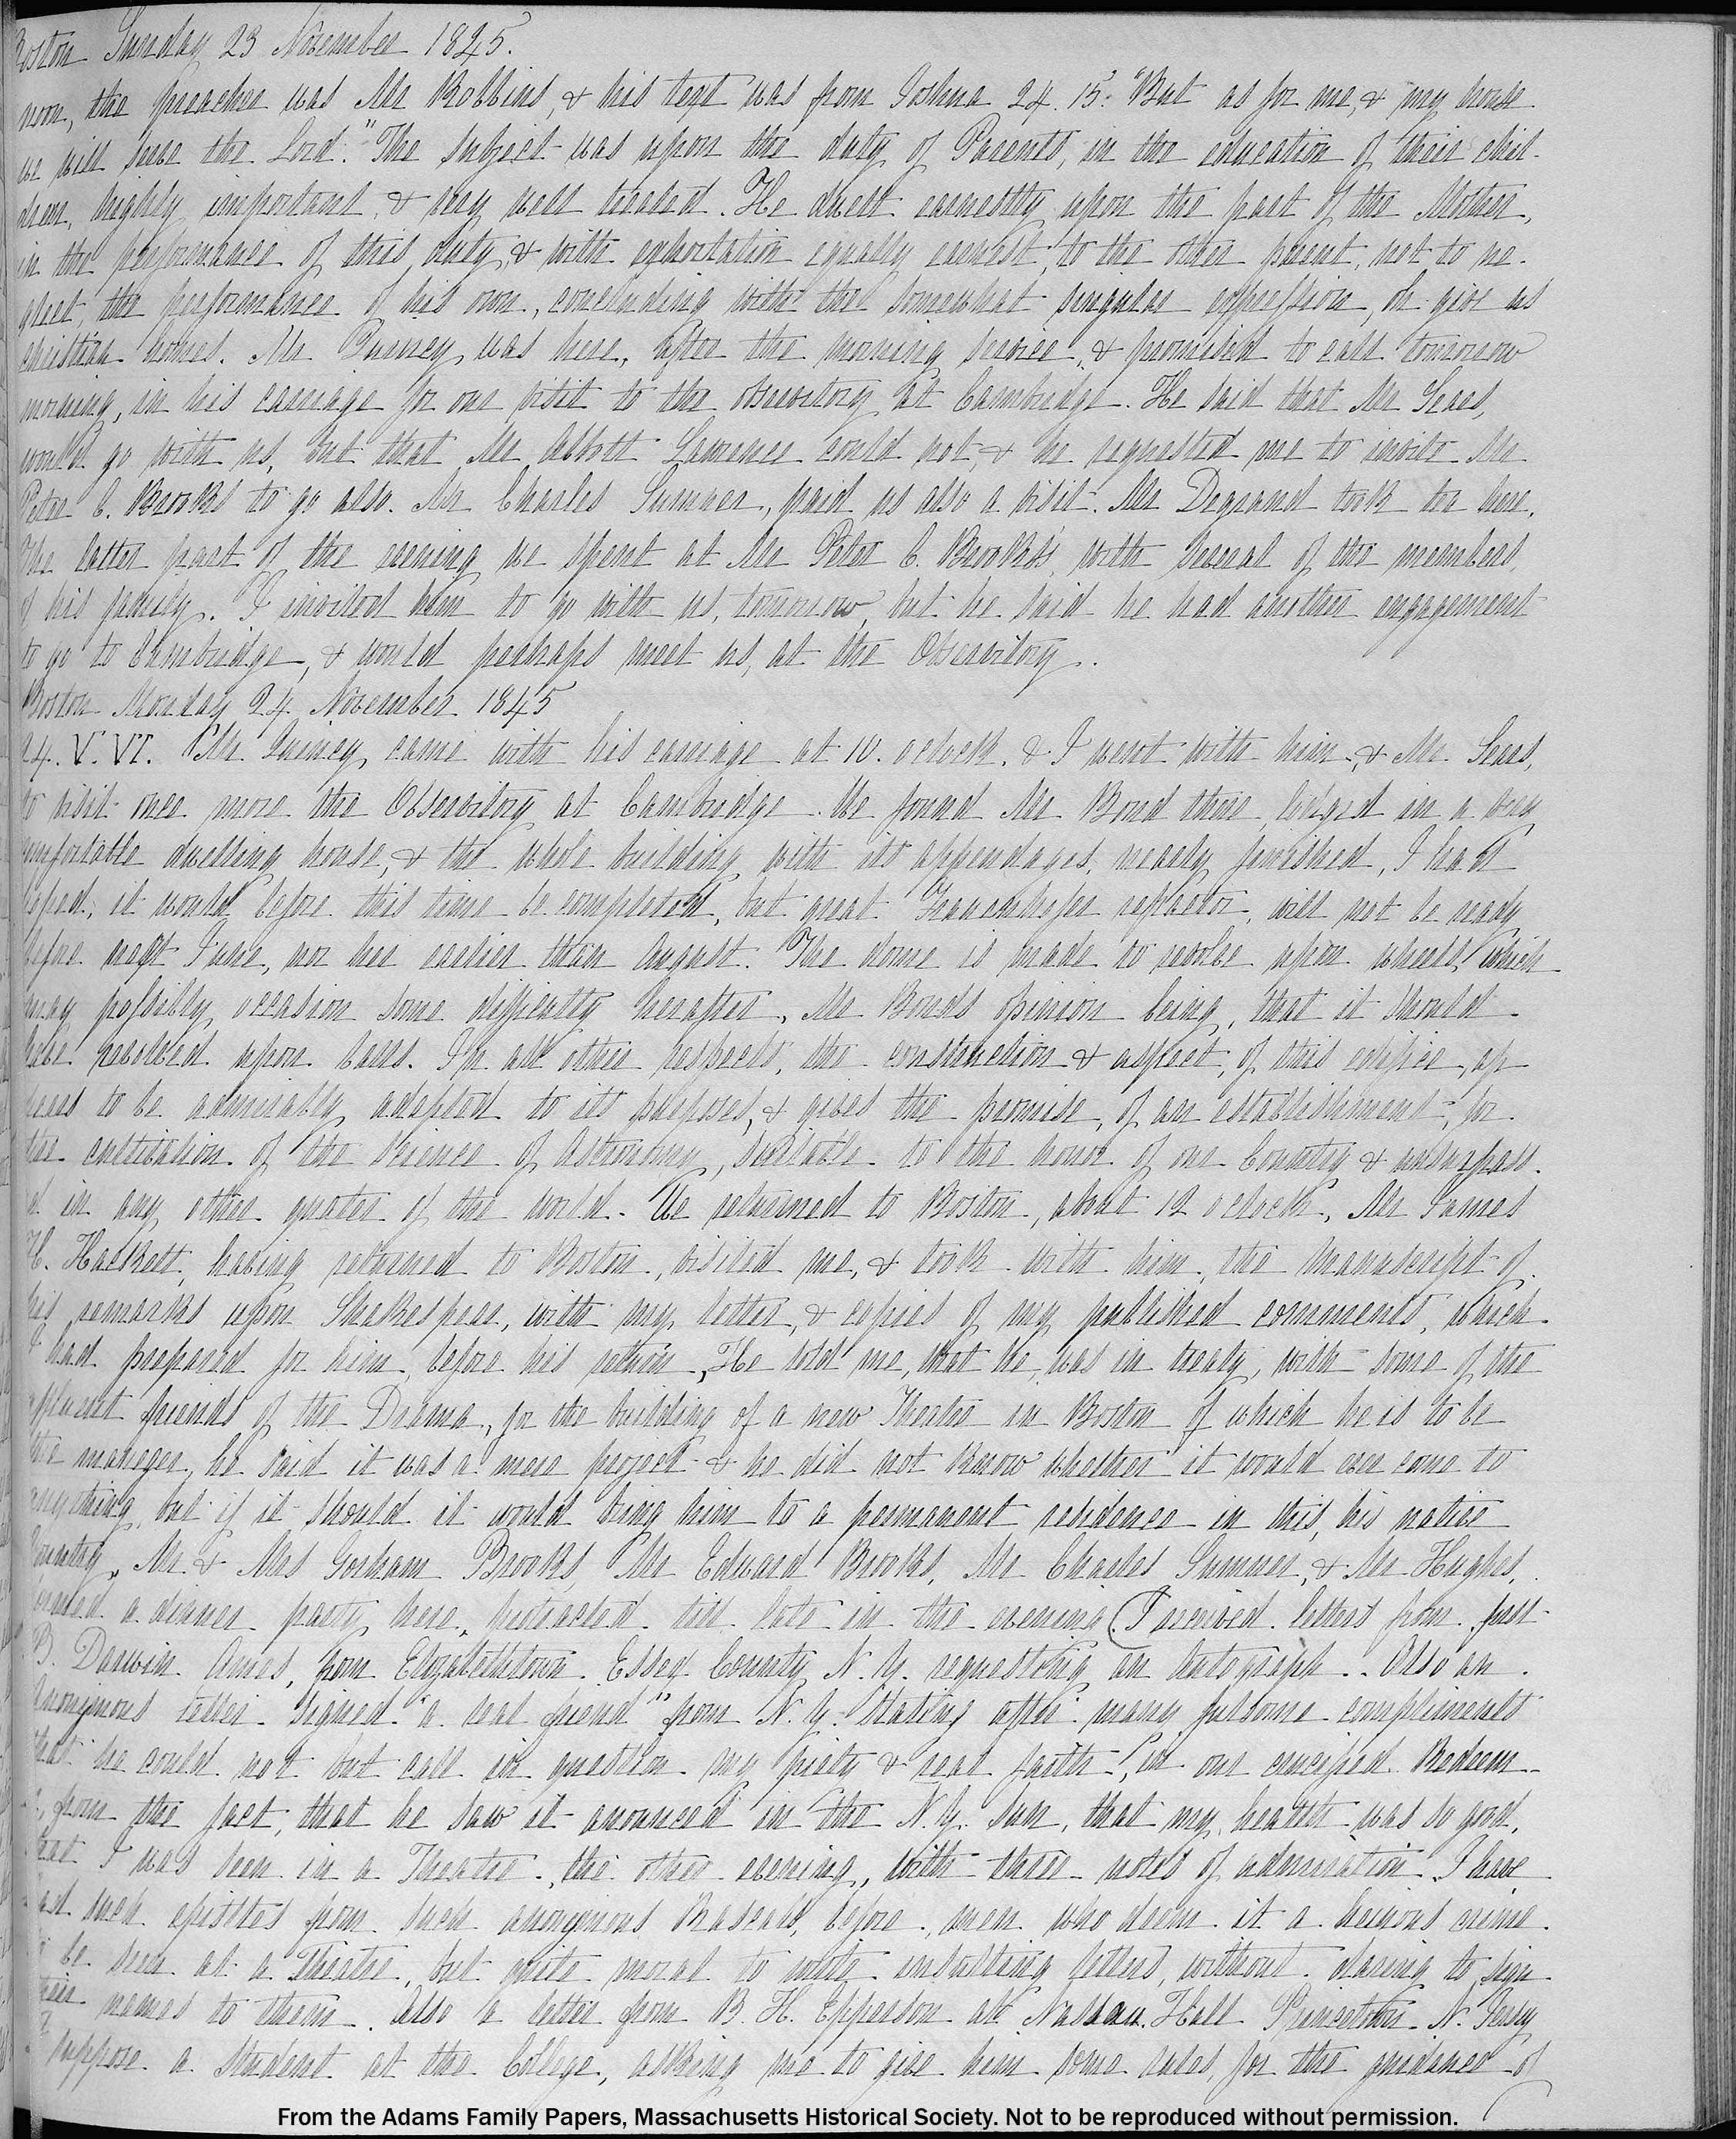 Boston Sunday 23 November 1845.
noon, the preacher was Mr Robbins, & his text was from Joshua 24. 15. "But as for me, & my house
we will serve the Lord." The subject was upon the duty of Parents, in the education of their chil-
dren, highly important, & very well treated. He dwelt earnestly upon the part of the Mother,
in the performance of this duty, & with exhortation equally earnest, to the other parent, not to ne-
glect, the performance of his own, concluding with the somewhat singular expression, oh give us
christian homes. Mr. Quincy was here, after the morning service, & promised to call tomorrow
morning, in his carriage for our visit to the observatory at Cambridge. He said that Mr Sears,
would go with us, but that Mr Abbott Lawrence could not, & he requested me to invite Mr
Peter C. Brooks to go also. Mr Charles Sumner, paid us also a visit. Mr Degrand took tea here.
The latter part of the evening we spent at Mr Peter C. Brooks's, with several of the members,
of his family. I invited him to go with us, tomorrow, but he said he had another engagement
to go to Cambridge, & would perhaps meet us, at the Observatory.
Boston Monday 24 November 1845
24. V. VI. Mr. Quincy, came with his carriage at 10. oclock. & I went with him, & Mr. Sears,
to visit once more the Observatory at Cambridge. We found Mr Bond there, lodged in a very
comfortable dwelling house, & the whole building with its appendages, nearly finished, I had
hoped, it would before this time be completed, but great Frauenhofer refractor, will not be ready
before next June, nor here earlier than August. The dome is made to revolve upon wheels, which
may possibly, occasion some difficulty hereafter, Mr Bonds opinion being, that it should
have revolved upon balls. In all other respects, the construction & aspect, of this edifice, ap
pears to be admirably adapted to its purposes, & gives the promise, of an establishment, for
the cultivation of the science of Astronomy, suitable to the honor of our Country & unsurpass-
ed in any other quarter of the world. We returned to Boston, about 12 oclock, Mr James
H. Hackett, having returned to Boston, visited me, & took with him, the Manuscript of
his remarks upon Shakespear, with my letter, & copies of my published comments, which
I had prepared for him, before his return, He told me, that he, was in treaty, with some of the
affluent friends of the Drama, for the building of a new Theatre in Boston of which he is to be
the manager, he said it was a mere project & he did not know whether it would ever come to
anything, but if it should it would bring him to a permanent residence in this, his native
Country. Mr. & Mrs Gorham Brooks, Mr Edward Brooks, Mr Charles Sumner, & Mr Hughes,
formed a dinner party here, protracted till late in the evening (I received letters from, just
B. Darwin Ames, from Elizabethtown Essex County N. Y. requesting an Autograph. Also an
Anonimous letter. Signed "a real friend" from N. Y. Stating after many fulsome compliments
that he could not but call in question my piety & real faith, in our crucified Redeem-
er, from the fact, that he saw it anounced in the N. Y. Sun, that my health was so good,
that I was seen in a Theatre, the other evening, with three notes of admiration. I have
had such epistles from such anonymous Rascals, before, men who deem it a heinous crime
to be seen at a Theatre, but quite moral to write insulting letters, without daring to sign
their names to them. Also a letter from B. H. Epperson at Nassau Hall Princeton N. Jersey
I suppose a student at the College, asking me to give him some rules, for the guidance of
From the Adams Family Papers, Massachusetts Historical Society. Not to be reproduced without permission.